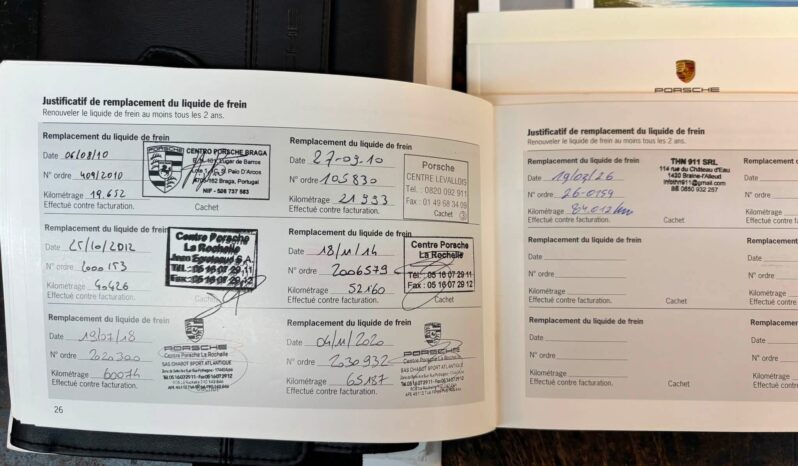 PORSCHE
Justificatif de remplacement du liquide de frein
Renouveler le liquide de frein au moins tous les 2 ans.
Remplacement du liquide de frein
Date 06/08/10
N° ordre 409/2010
Kilométrage 19.652
Effectué contre facturation.
Cachet
PORSCHE
CENTRO PORSCHE BRAGA
Lugar de Barros
Braga, Portugal
Remplacement du liquide de frein
Date 27-09-10
N° ordre 105830
Kilométrage 21993
Effectué contre facturation.
Cachet
Porsche
CENTRE LEVALLOIS
Tél. : 0820 092 911
Fax : 01 49 68 34 09
Remplacement du liquide de frein
Date 25/10/2012
N° ordre 2000153
Kilométrage 40426
Effectué contre facturation.
Cachet
Centre Porsche
La Rochelle
Tél. : 05 16 07 29 11
Fax : 05 16 07 29 12
Remplacement du liquide de frein
Date 18/11/14
N° ordre 2006579
Kilométrage 52160
Effectué contre facturation.
Centre Porsche
La Rochelle
Tél. : 05 16 07 29 11
Fax : 05 16 07 29 12
Remplacement du liquide de frein
Date 19/07/18
N° ordre 2020300
Kilométrage 60074
Effectué contre facturation.
Centre Porsche La Rochelle
SAS CHABOT SPORT ATLANTIQUE
Remplacement du liquide de frein
Date 04/11/2020
N° ordre 230932
Kilométrage 65187
Effectué contre facturation.
Centre Porsche La Rochelle
SAS CHABOT SPORT ATLANTIQUE
26
PORSCHE
Justificatif de remplacement du liquide de frein
Renouveler le liquide de frein au moins tous les 2 ans.
Remplacement du liquide de frein
Date 19/03/26
N° ordre 26-0159
Kilométrage 84.012 km
Effectué contre facturation.
Cachet
THN 911 SRL
114 rue du Château d'Eau
1420 Braine-l'Alleud
infothn911@gmail.com
BE 0850 932 257
Remplacement
Date
N° ordre
Kilométrage
Effectué contre
Remplacement du liquide de frein
Date
N° ordre
Kilométrage
Effectué contre facturation.
Cachet
Remplacement
Date
N° ordre
Kilométrage
Effectué contre
Remplacement du liquide de frein
Date
N° ordre
Kilométrage
Effectué contre facturation.
Cachet
Remplacement
Date
N° ordre
Kilométrage
Effectué contre